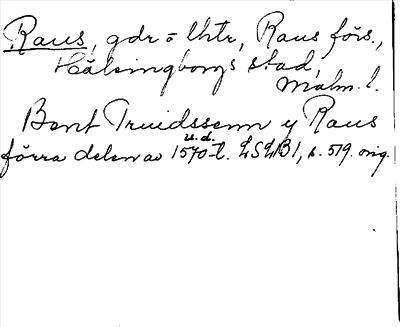 Raus, gdr = lhtr, Raus förs.,
Hälsingborgs stad,
Malm. l.
Bent Truidssenn y Raus
u.d.
förra delen av 1570-t. LSLB 1, s. 519. orig.